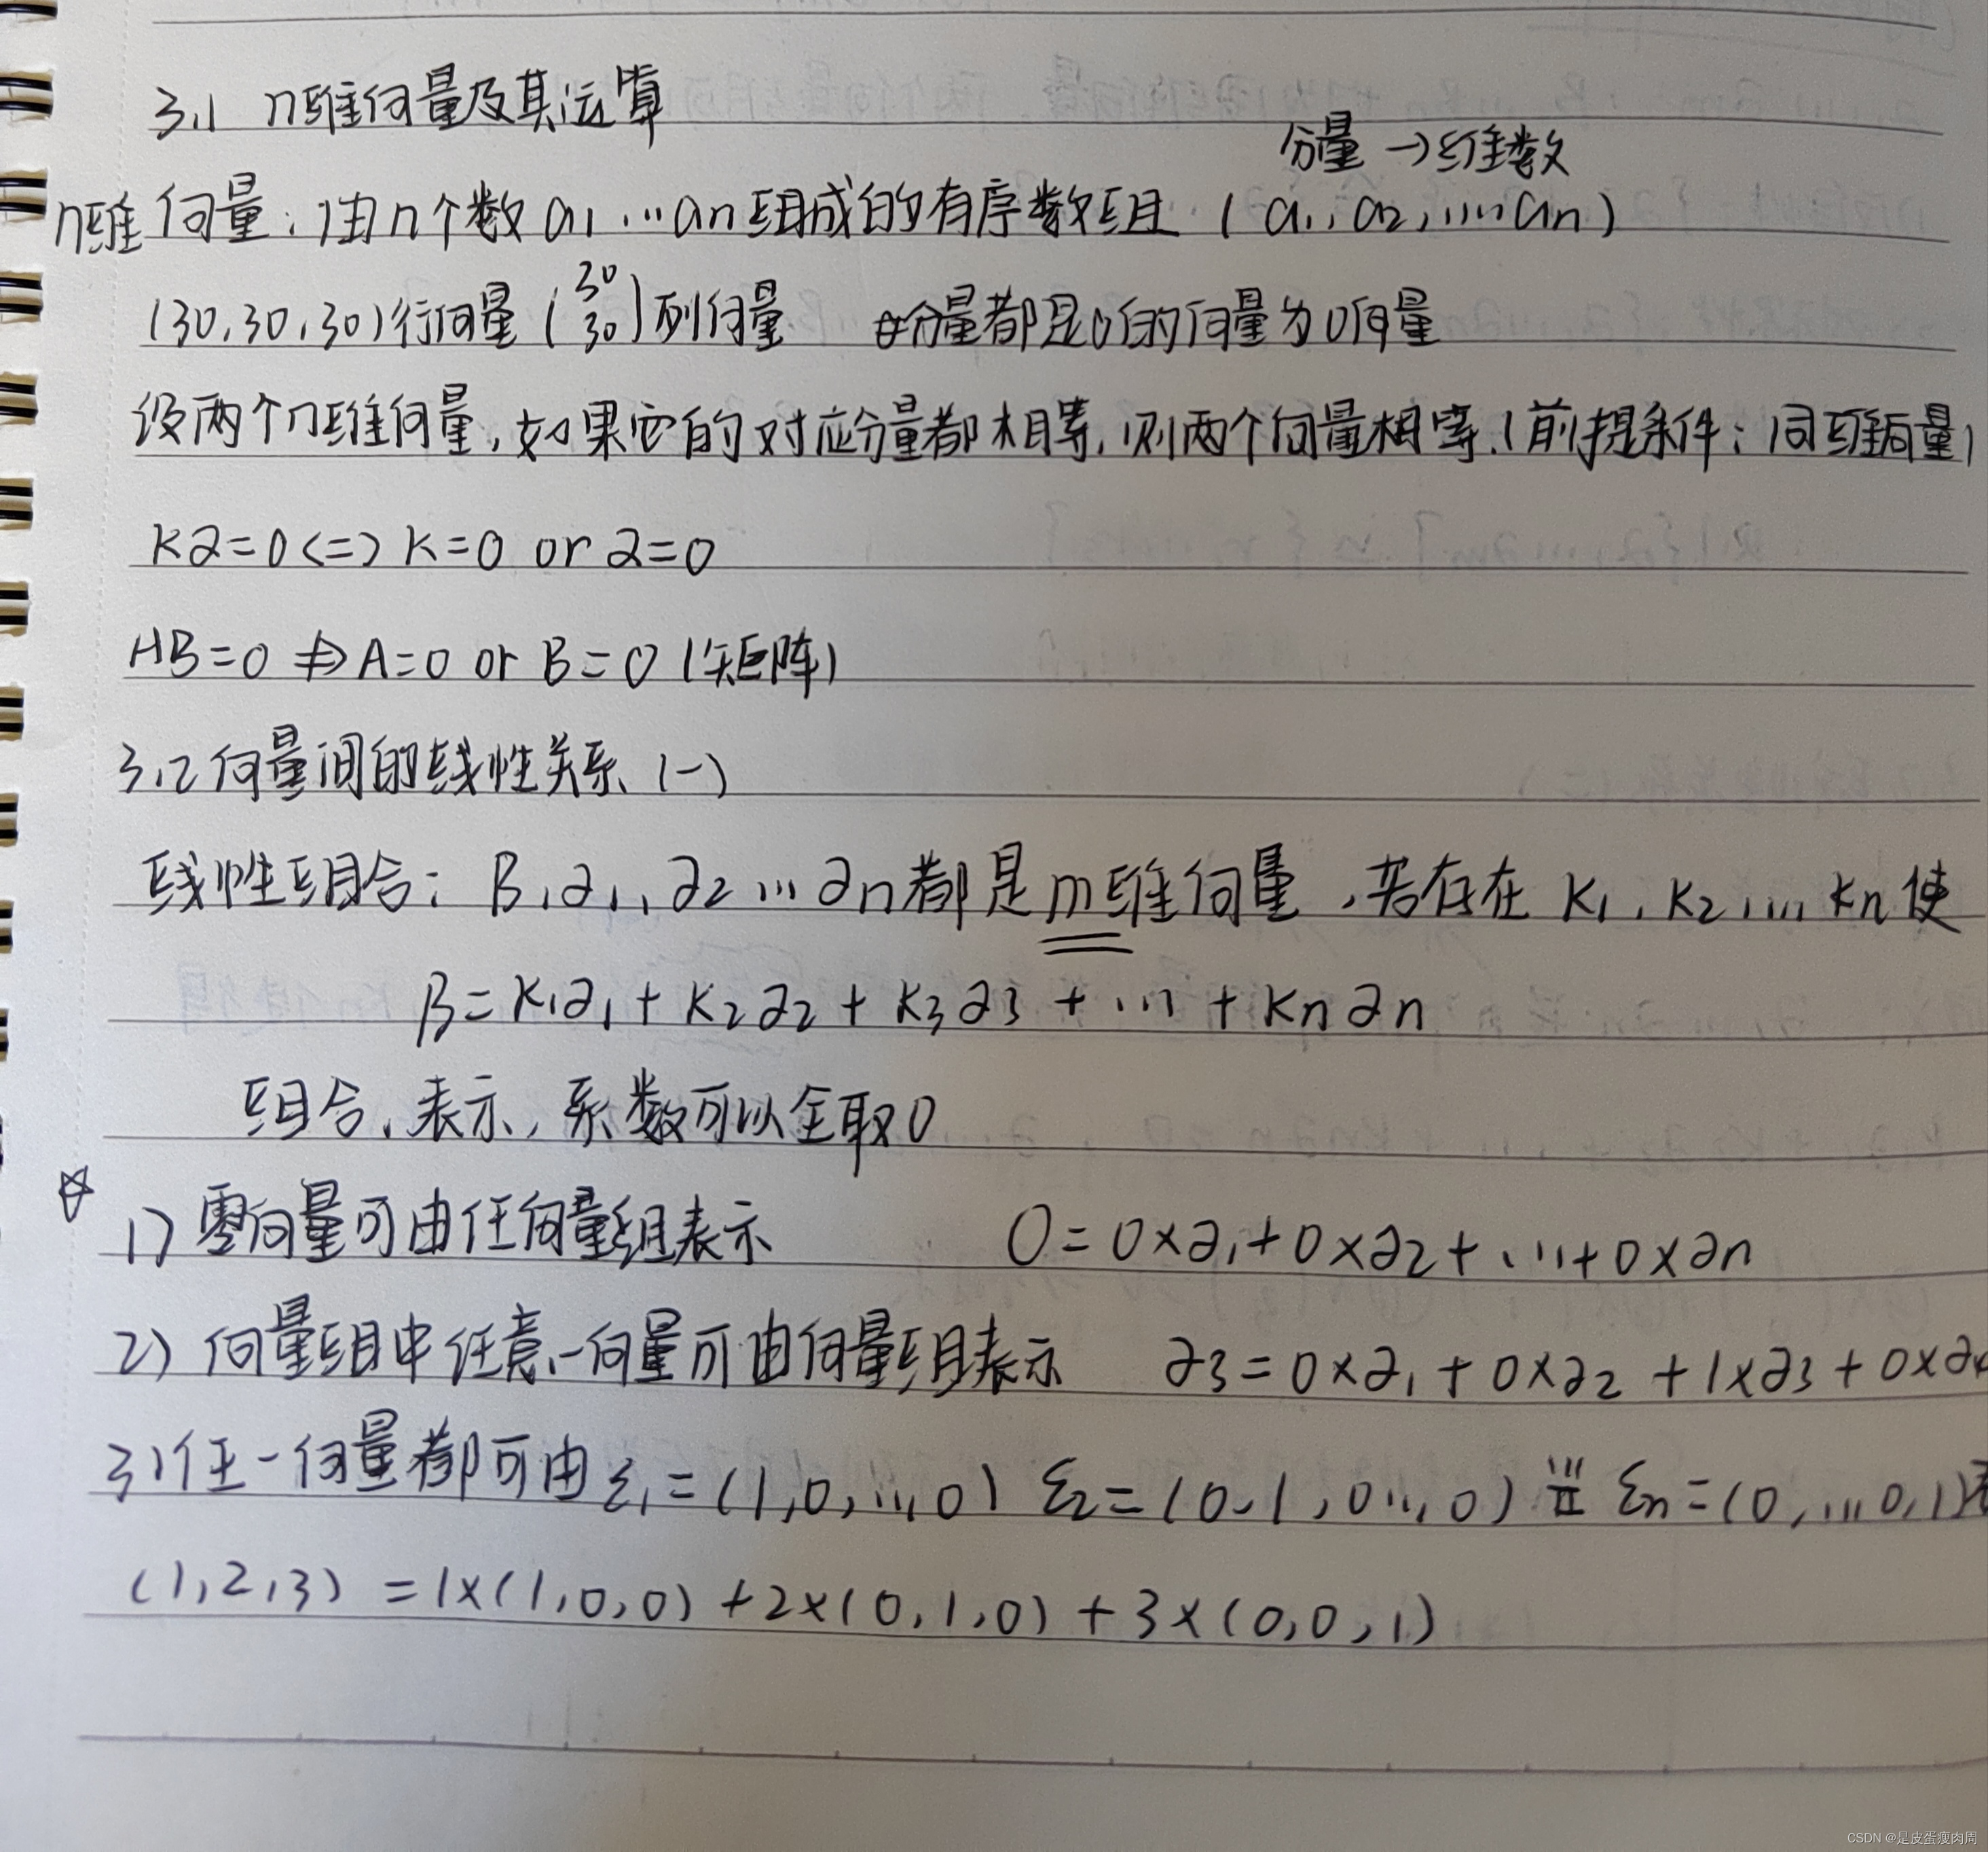 3.1 n维向量及其运算
分量 → 维数
n维向量：由n个数 a1 … an 组成的有序数组 (a1, a2, … an)
(30,30,30)行向量 (30 30)列向量 分量都是0的向量为0向量
设两个n维向量,如果它的对应分量都相等,则两个向量相等.(前提条件：同维向量)
k∂=0 <=> k=0 or ∂=0
AB=0 ⇏ A=0 or B=0 (矩阵)
3.2 向量间的线性关系 (一)
线性组合：β,∂1,∂2 … ∂n都是m维向量,若存在 k1,k2,… kn 使
β=k1∂1+k2∂2+k3∂3+…+kn∂n
组合,表示,系数可以全取0
☆ 1) 零向量可由任何量组表示 0=0×∂1+0×∂2+…+0×∂n
2) 向量组中任意一向量可由向量组表示 ∂3=0×∂1+0×∂2+1×∂3+0×∂4
3)任一向量都可由 ε1=(1,0,…,0) ε2=(0,1,0…,0) … εn=(0,…0,1)
(1,2,3) =1×(1,0,0)+2×(0,1,0)+3×(0,0,1)
CSDN @是皮蛋瘦肉周